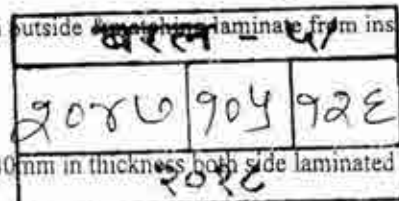 outside & matching laminate from ins
बरल - ५/
२०४७ १०५ १२६
0mm in thickness both side laminated
२०२८